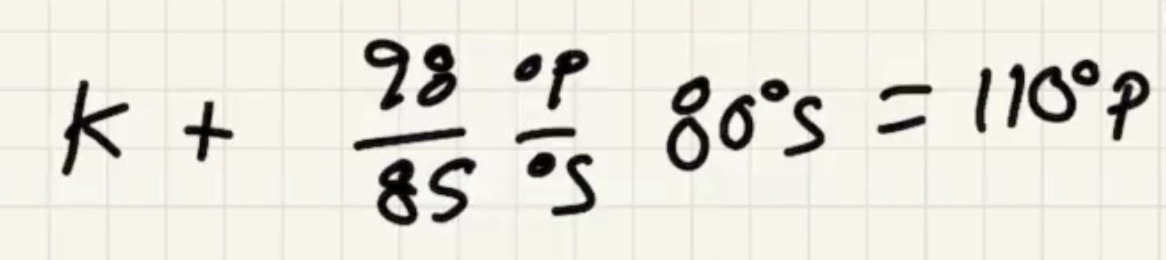 K + 98/85 °P/°S 80°S = 110°P